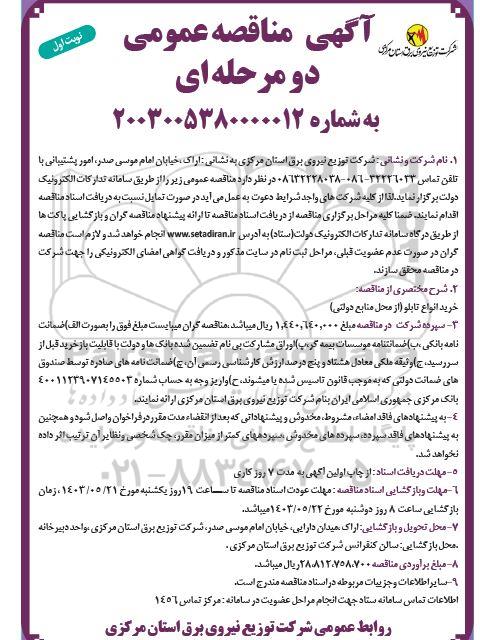 شرکت توزیع نیروی برق استان مرکزی
نوبت اول
آگهی مناقصه عمومی
دو مرحله ای
به شماره ۲۰۰۳۰۰۵۳۸۰۰۰۰۰۱۲
۱. نام شرکت ونشانی : شرکت توزیع نیروی برق استان مرکزی به نشانی : اراک ،خیابان امام موسی صدر، امور پشتیبانی با
تلفن تماس ۳۲۲۲۶۰۳۳-۰۸۶ -۰۸۶۳۲۲۲۸۰۳۸ در نظر دارد مناقصه عمومی زیر را از طریق سامانه تدارکات الکترونیک
دولت برگزار نماید.لذا از کلیه شرکت های واجد شرایط دعوت به عمل می آید در صورت تمایل نسبت به دریافت اسناد مناقصه
اقدام نمایند. ضمنا کلیه مراحل برگزاری مناقصه از دریافت اسناد مناقصه تا ارائه پیشنهاد مناقصه گران و بازگشایی پاکت ها
از طریق درگاه سامانه تدارکات الکترونیک دولت(ستاد) به آدرس www.setadiran.ir انجام خواهد شد و لازم است مناقصه
گران در صورت عدم عضویت قبلی، مراحل ثبت نام در سایت مذکور و دریافت گواهی امضای الکترونیکی را جهت شرکت
در مناقصه محقق سازند.
۲. شرح مختصری از مناقصه:
خرید انواع تابلو (از محل منابع دولتی)
۳- سپرده شرکت در مناقصه مبلغ ۱,۴۴۰,۶۴۰,۰۰۰ ریال میباشد.مناقصه گران میبایست مبلغ فوق را بصورت الف)ضمانت
نامه بانکی ،ب)ضمانتنامه موسسات بیمه گر،پ)اوراق مشارکت بی نام تضمین شده بانک ها و دولت با قابلیت بازخرید قبل از
سررسید، ج)وثیقه ملکی معادل هشتاد و پنج درصد ارزش کارشناسی رسمی آن، چ)ضمانت نامه های صادره توسط صندوق
های ضمانت دولتی که به موجب قانون تاسیس شده یا میشوند، ح)واریز وجه به حساب شماره ۴۰۰۱۱۲۳۹۰۷۱۴۵۵۰۳
بانک مرکزی جمهوری اسلامی ایران بنام شرکت توزیع نیروی برق استان مرکزی ارائه نمایند.
۴- به پیشنهادهای فاقد امضاء، مشروط، مخدوش و پیشنهاداتی که بعد از انقضاء مدت مقرر در فراخوان واصل شود و همچنین
به پیشنهادهای فاقد سپرده، سپرده های مخدوش ،سپردههای کمتر از میزان مقرر، چک شخصی ونظایر آن ترتیب اثر داده
نخواهد شد.
۵- مهلت دریافت اسناد : از چاپ اولین آگهی به مدت ۷ روز کاری
۶- مهلت وبازگشایی اسناد مناقصه : مهلت عودت اسناد مناقصه تا ساعت ۱۹ روز یکشنبه مورخ ۱۴۰۳/۰۵/۲۱ ، زمان
بازگشایی ساعت ۸ روز دوشنبه مورخ ۱۴۰۳/۰۵/۲۲میباشد.
۷- محل تحویل و بازگشایی: اراک ،میدان دارایی، خیابان امام موسی صدر، شرکت توزیع برق استان مرکزی ،واحد دبیرخانه
.محل بازگشایی: سالن کنفرانس شرکت توزیع برق استان مرکزی .
۸- مبلغ برآوردی مناقصه ۲۸،۸۱۲،۷۵۸،۷۰۰ ریال میباشد.
۹- سایر اطلاعات و جزییات مربوطه در اسناد مناقصه مندرج است.
اطلاعات تماس سامانه ستاد جهت انجام مراحل عضویت در سامانه : مرکز تماس ۱۴۵۶
روابط عمومی شرکت توزیع نیروی برق استان مرکزی